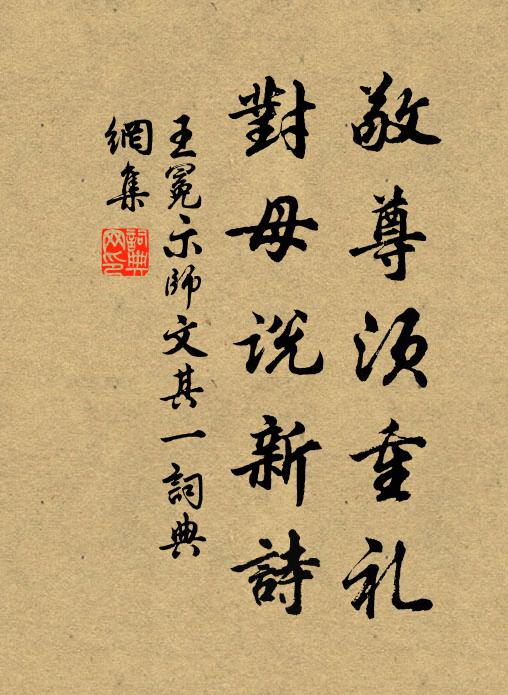 敬尊須重礼
對母説新詩
王冕示師文其一詞典
網集
詞典
网印